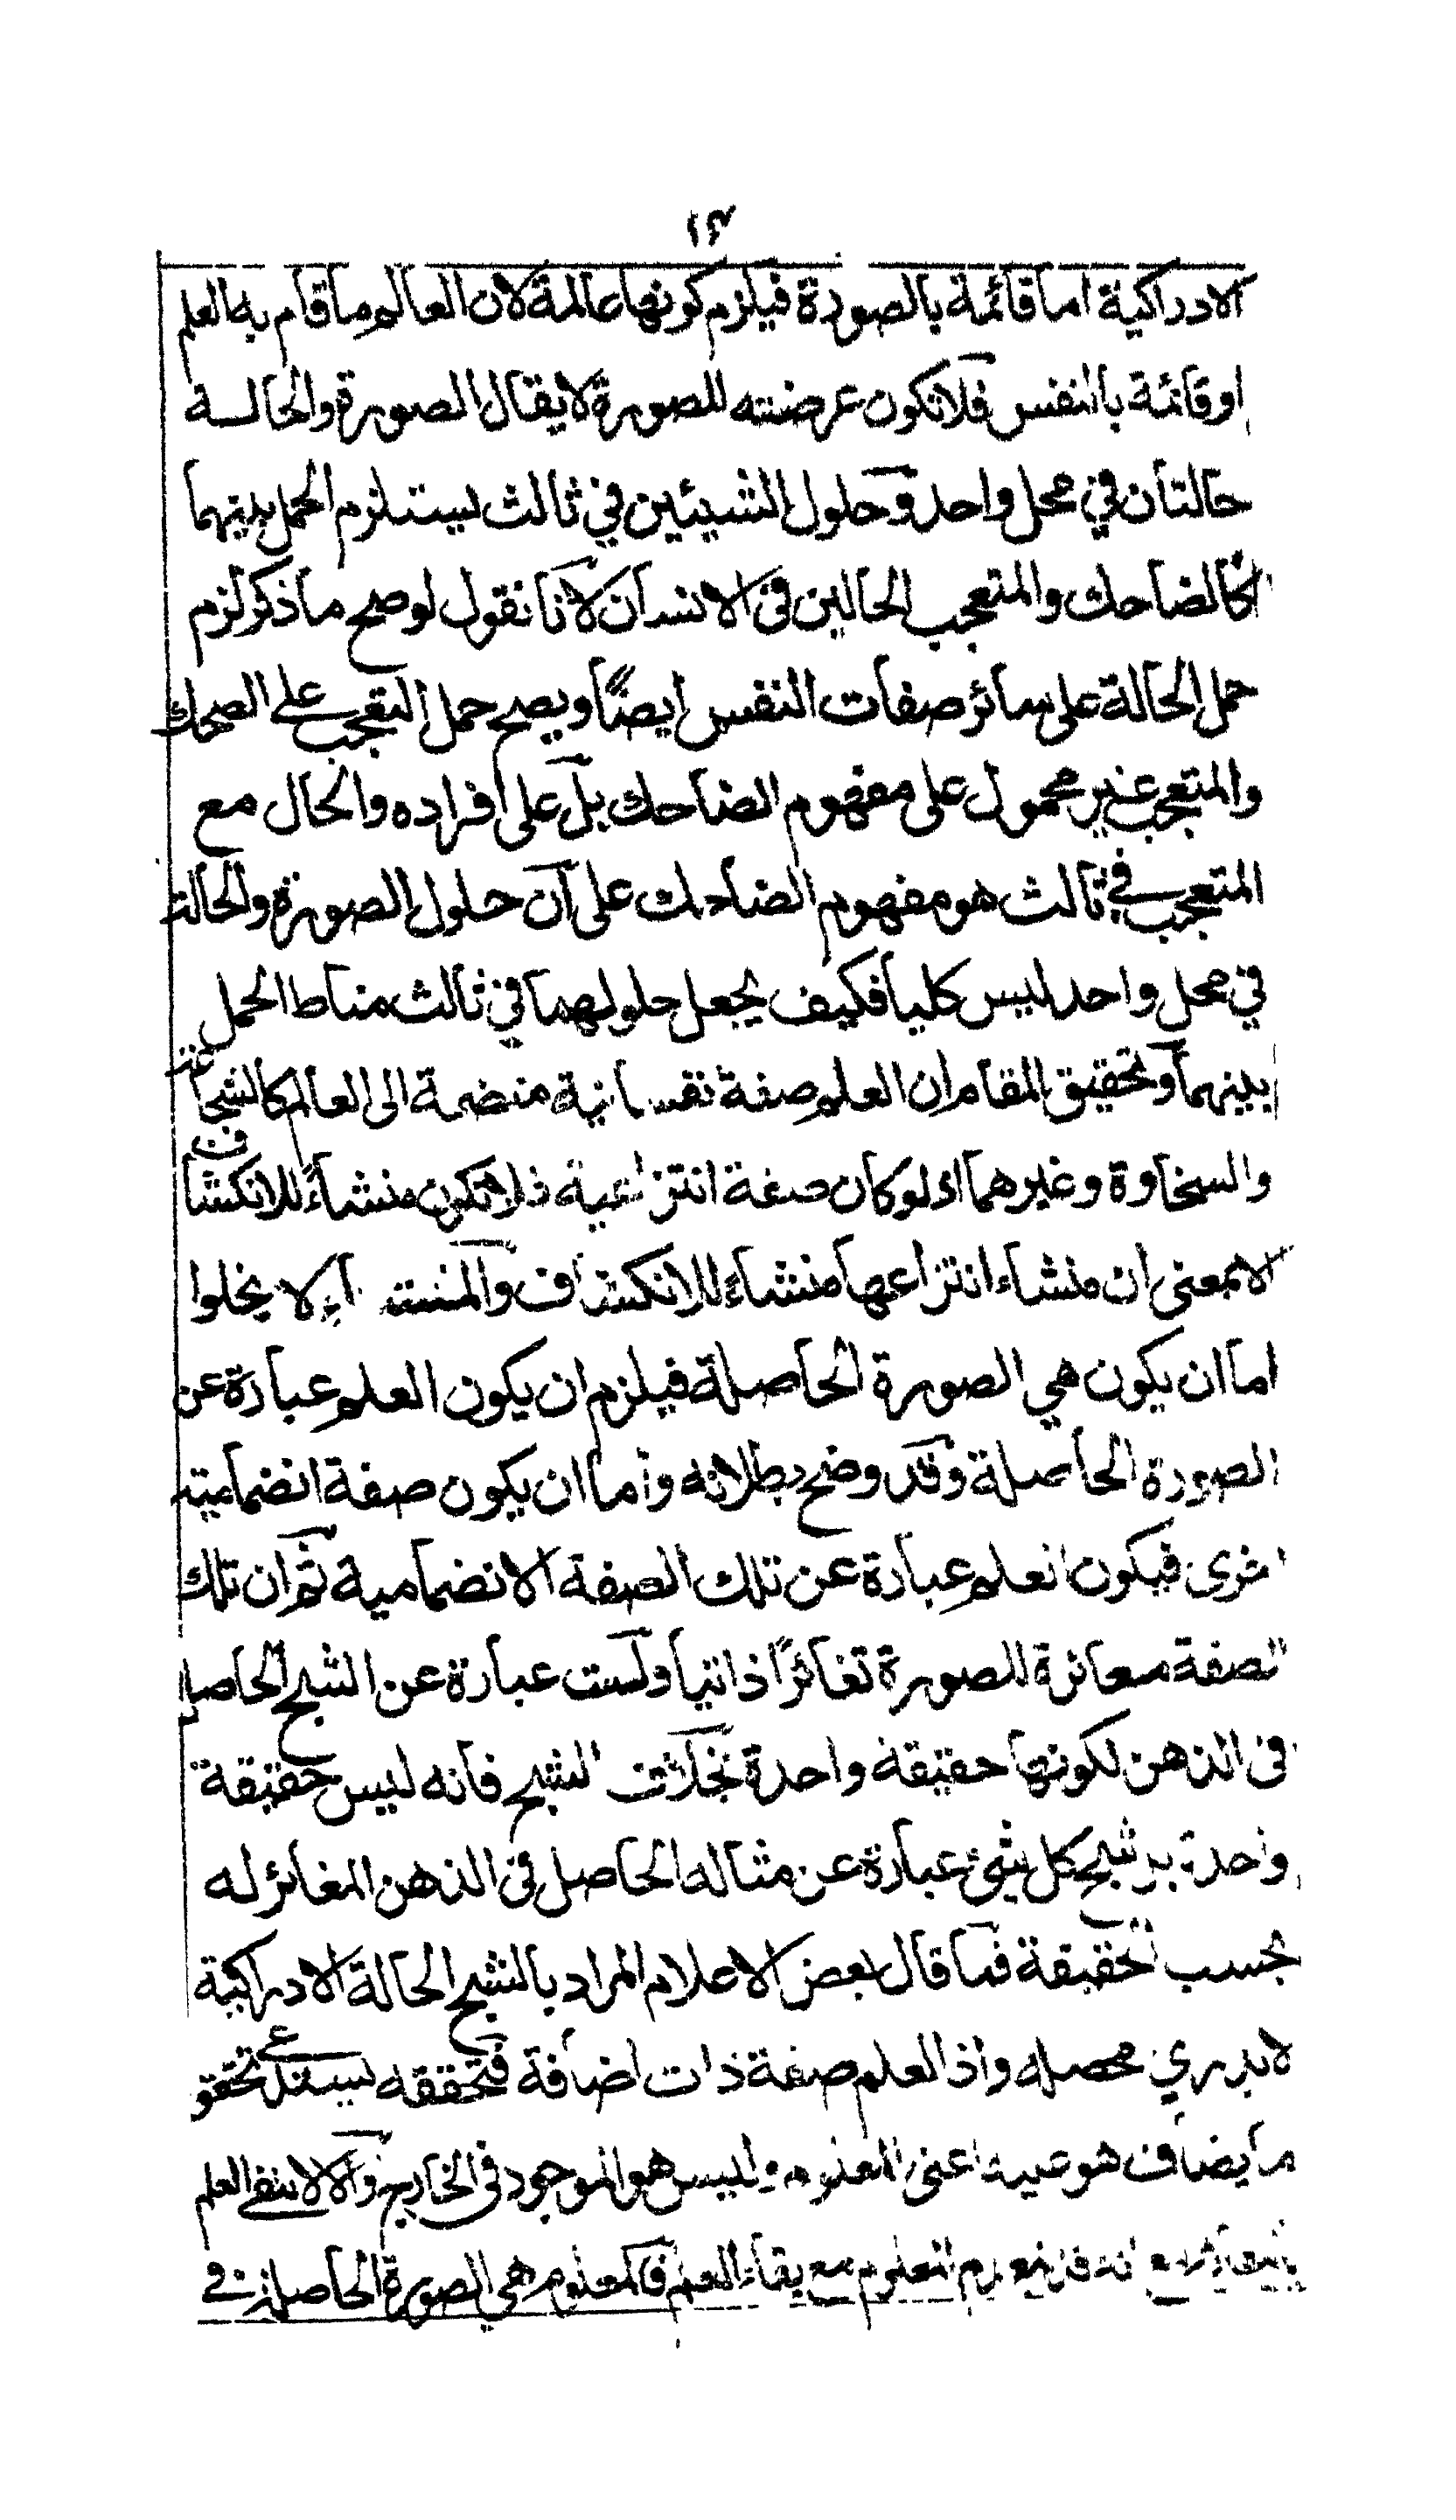 ١٢
الادراكية اما قائمة بالصورة فيلزم كونها عالمة لان العالم ما قام به العلم
او قائمة بالنفس فلا تكون عرضته للصورة لا يقال الصورة والحالة
حالتان في محل واحد وحلول الشيئين في ثالث يستلزم الحمل بينهما
كالضاحك والمتعجب الحالين فى الانسان لانا نقول لو صح ما ذكر لزم
حمل الحالة على سائر صفات النفس ايضًا ويصح حمل التعجب على الضحك
والمتعجب غير محمول على مفهوم الضاحك بل على افراده والحال مع
المتعجب في ثالث هو مفهوم الضاحك على ان حلول الصورة والحالة
في محل واحد ليس كليا فكيف يجعل حلولهما في ثالث مناط الحمل
بينهما وتحقيق المقام ان العلم صفة نفسانية منضمة الى العالم كالشجاعة
والسخاوة وغيرهما اذ لو كان صفة انتزاعية فلا تكون منشاءً للانكشاف
الا بمعنى ان منشاء انتزاعها منشاءً للانكشاف والمنشاء لا يخلوا
اما ان يكون هي الصورة الحاصلة فيلزم ان يكون العلم عبارة عن
الصورة الحاصلة وقد وضح بطلانه واما ان يكون صفة انضمامية
اخرى فيكون العلم عبارة عن تلك الصفة الانضمامية ثم ان تلك
الصفة مغائرة للصورة تغائرًا ذاتيا وليست عبارة عن الشبح الحاصل
فى الذهن لكونها حقيقة واحدة بخلاف الشبح فانه ليس حقيقة
واحدة بل شبح كل شئ عبارة عن مثاله الحاصل فى الذهن المغائر له
بحسب الحقيقة فما قال بعض الاعلام المراد بالشبح الحالة الادراكية
لا يدري محصله واذ العلم صفة ذات اضافة فتحققه يستدعى تحقق
ما يضاف هو اليه اعنى المعلوم وليس هو الموجود فى الخارج والا لانتفى العلم
بانتفائه مع انه قد ينعدم المعلوم مع بقاء العلم فالمعلوم هي الصورة الحاصلة في